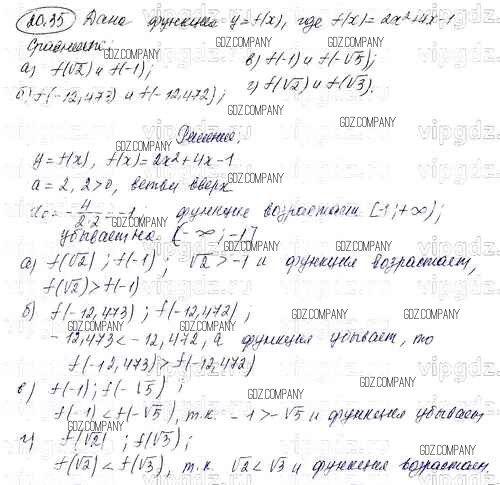 20.35 Дана функция y=f(x), где f(x)=2x²+4x-1
Сравните:
а) f(√2) и f(-1);
в) f(-1) и f(-√5);
б) f(-12,473) и f(-12,472);
г) f(√2) и f(√3).
GDZ.COMPANY
Решение:
y=f(x), f(x)=2x²+4x-1
a=2, 2>0, ветви вверх
x₀=-4/2·2=-1; функция возрастает [-1;+∞);
убывает на (-∞;-1]
а) f(√2); f(-1); √2>-1 и функция возрастает,
f(√2)>f(-1)
б) f(-12,473); f(-12,472);
-12,473<-12,472, а функция убывает, то
f(-12,473)>f(-12,472)
в) f(-1); f(-√5);
f(-1)<f(-√5), т.к. -1>-√5 и функция убывает
г) f(√2); f(√3);
f(√2)<f(√3), т.к. √2<√3 и функция возрастает.
vipgdz.com